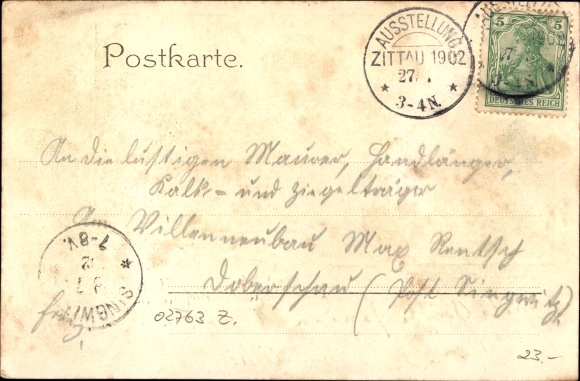 Postkarte.
AUSSTELLUNG
ZITTAU 1902
27.
* 3-4 N. *
5 5
DEUTSCHES REICH
An die lustigen Maurer, Handlänger,
Kalk- und Ziegelträger
Im Villenneubau Max Rentsch
Doberschau (Post Singwitz)
frei
SINGWI
7-8V.
02763 Z.
23.-